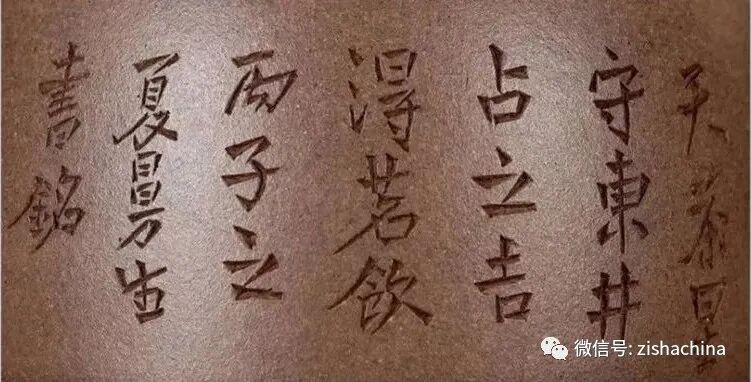 天茶星
守東井
占之吉
得茗飲
丙子之
夏曼生
書銘
微信号: zishachina